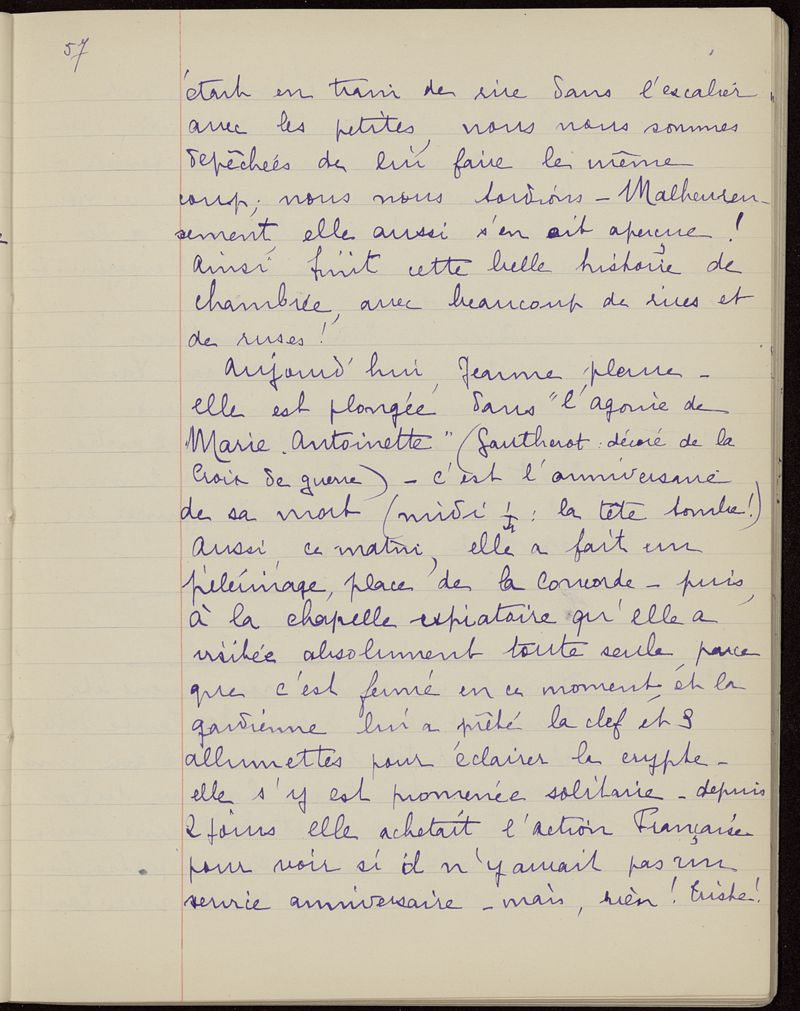 57
était en train de rire dans l'escalier
avec les petites, nous nous sommes
depêcheés de lui faire le même
coup; nous nous tordions – Malheureu-
sement, elle aussi s'en est aperçue !
Ainsi finit cette belle histoire de
chambrée, avec beaucoup de rires et
de ruses !
Aujourd'hui, Jeanne pleure –
elle est plongée dans "l'agonie de
Marie.Antoinette" (Gautherot : décoré de la
Croix de guerre) – c'est l'anniversaire
de sa mort (midi 1/4 : la tête tombe!)
Aussi ce matin, elle a fait un
pélerinage, place de la Concorde – puis,
à la chapelle expiatoire qu'elle a
visitée absolument toute seule, parce
que c'est fermé en ce moment, et la
gardienne lui a prêté la clef et 3
allumettes pour éclairer la crypte –
elle s'y est promenée solitaire – depuis
2 jours elle achetait l'action Française
pour voir si il n'y avait pas un
service anniversaire – mais, rien ! Triste !